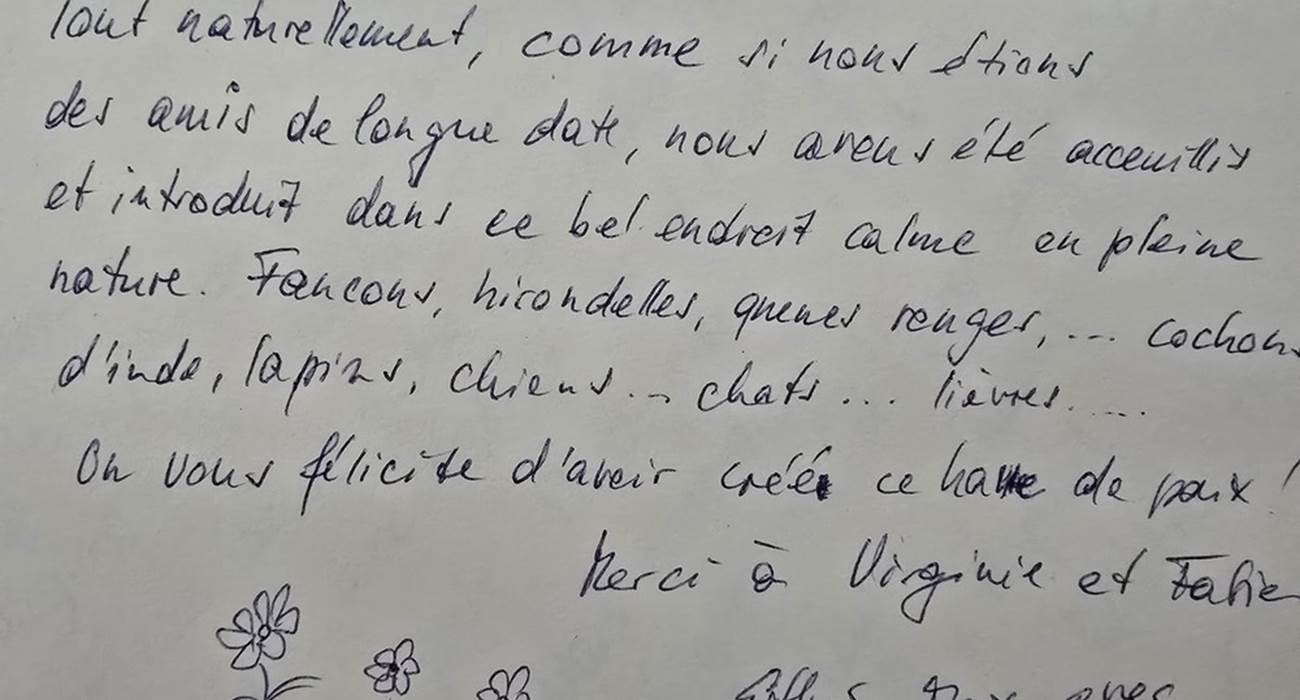 Tout naturellement, comme si nous étions
des amis de longue date, nous avons été acceuillis
et introduit dans ce bel endroit calme en pleine
nature. Faucons, hirondelles, queues rouges, ... cochons
d'inde, lapins, chiens ... chats ... lièvres.....
On vous félicite d'avoir créé ce havre de paix !
Merci à Virginie et Fabien
avec